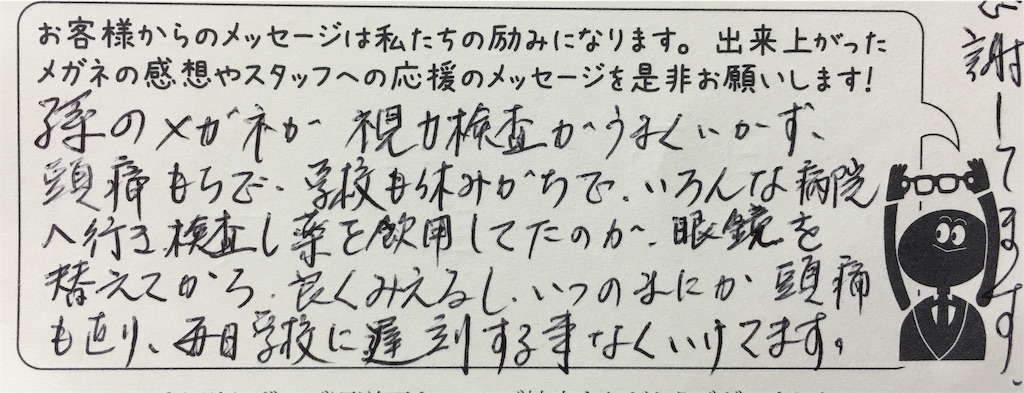 お客様からのメッセージは私たちの励みになります。出来上がった
メガネの感想やスタッフへの応援のメッセージを是非お願いします!
孫のメガネが視力検査がうまくいかず、
頭痛もちで、学校も休みがちで、いろんな病院
へ行き検査し薬を飲用してたのが、眼鏡を
替えてから、良くみえるし、いつのまにか頭痛
も直り、毎日学校に遅刻する事なくいけてます。
謝してます、